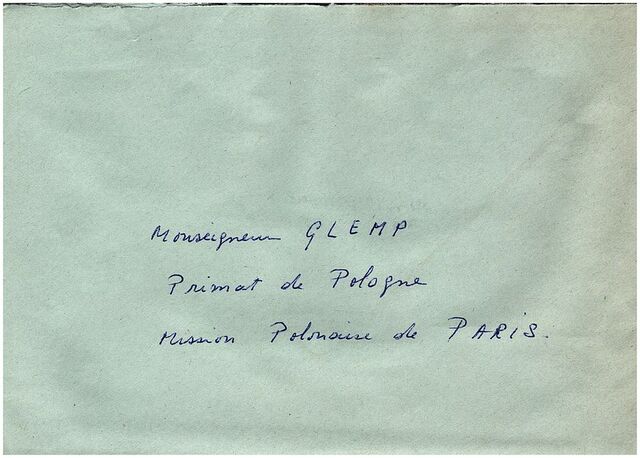 Monseigneur GLEMP
Primat de Pologne
Mission Polonaise de PARIS.